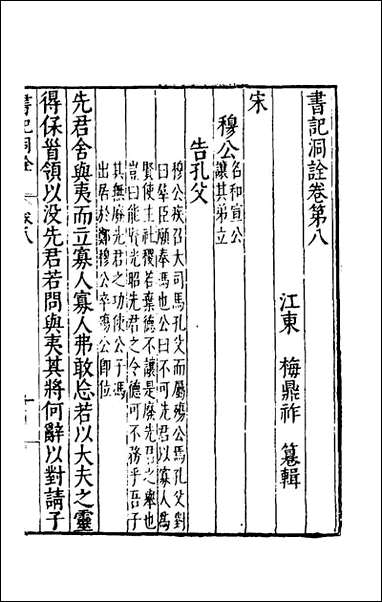 書記洞詮卷第八
江東　梅鼎祚　纂輯
宋
穆公名和宣公
讓其弟立
告孔父
穆公疾召大司馬孔父而屬殤公焉孔父對
曰羣臣願奉馮也公曰不可先君以寡人爲
賢使主社稷若棄德不讓是廢先君之舉也
豈曰能賢光昭先君之令德可不務乎吾子
其無廢先君之功使公子馮
出居於鄭穆公卒殤公即位
先君舍與夷而立寡人寡人弗敢忘若以大夫之靈
得保首領以没先君若問與夷其將何辭以對請子
書記洞詮
卷八